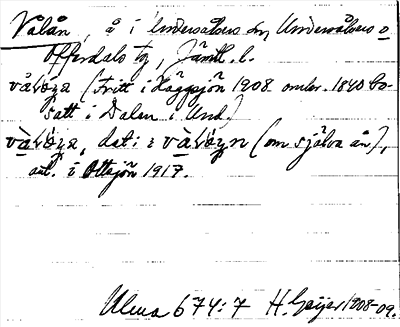 Välån, å i Undersåkers sn, Undersåkers o
Offerdals tg, Jämtl. l.
våḷöɳa (Fritt i Häggsjön 1908 omkr. 1840 bo-
satt i Dalen i Und.)
våḷöɳa, dat: i våḷöɳn (om själva ån),
ant. i Ottsjön 1917.
Ulma 674:7 H. Geijer 1908-09.